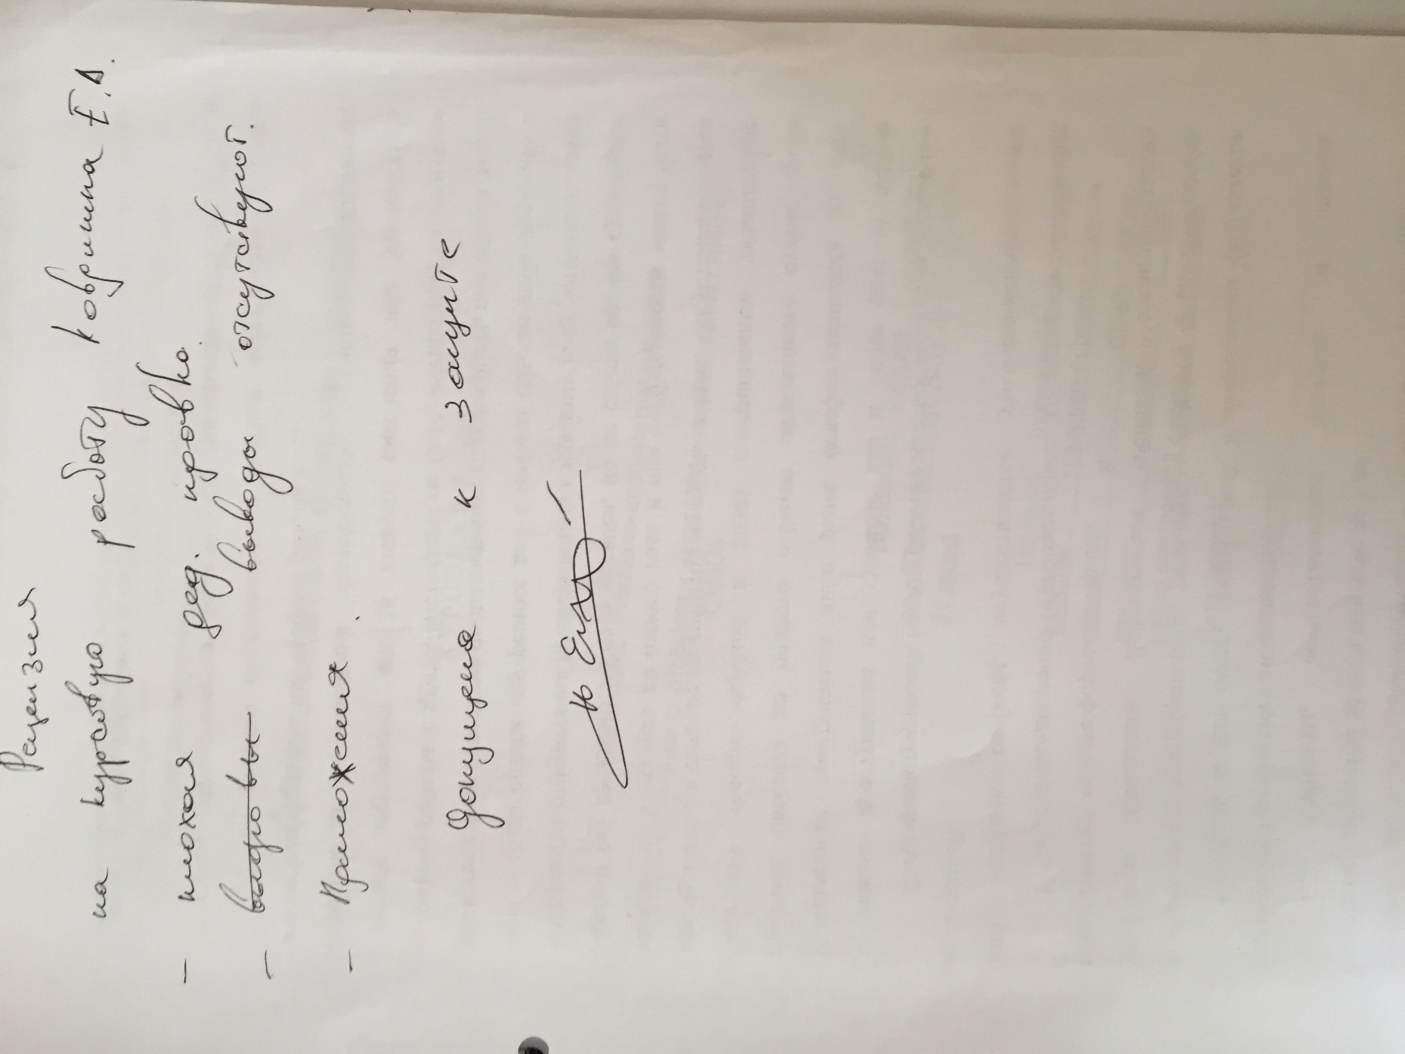 Рецензия
на курсовую работу Ковришка Е.А.
- плохая ред. правка.
- выводы отсутствуют.
- Приложения.
Допущена к защите